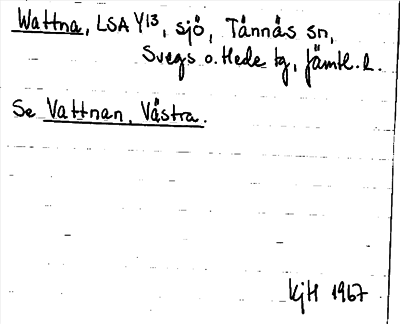 Wattna, LSA Y13, sjö, Tännäs sn,
Svegs o. Hede tg, Jämtl. l.
Se Vattnan, Västra.
KjH 1967